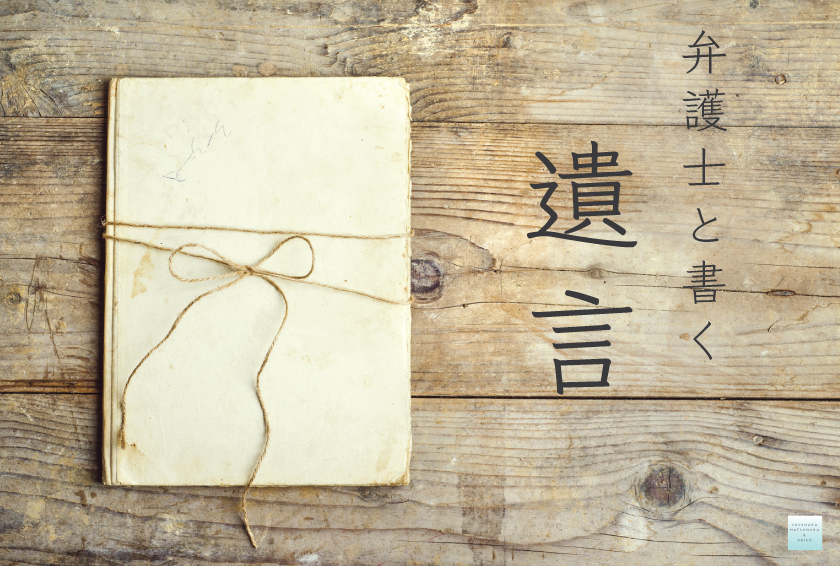 弁護士と書く
遺言